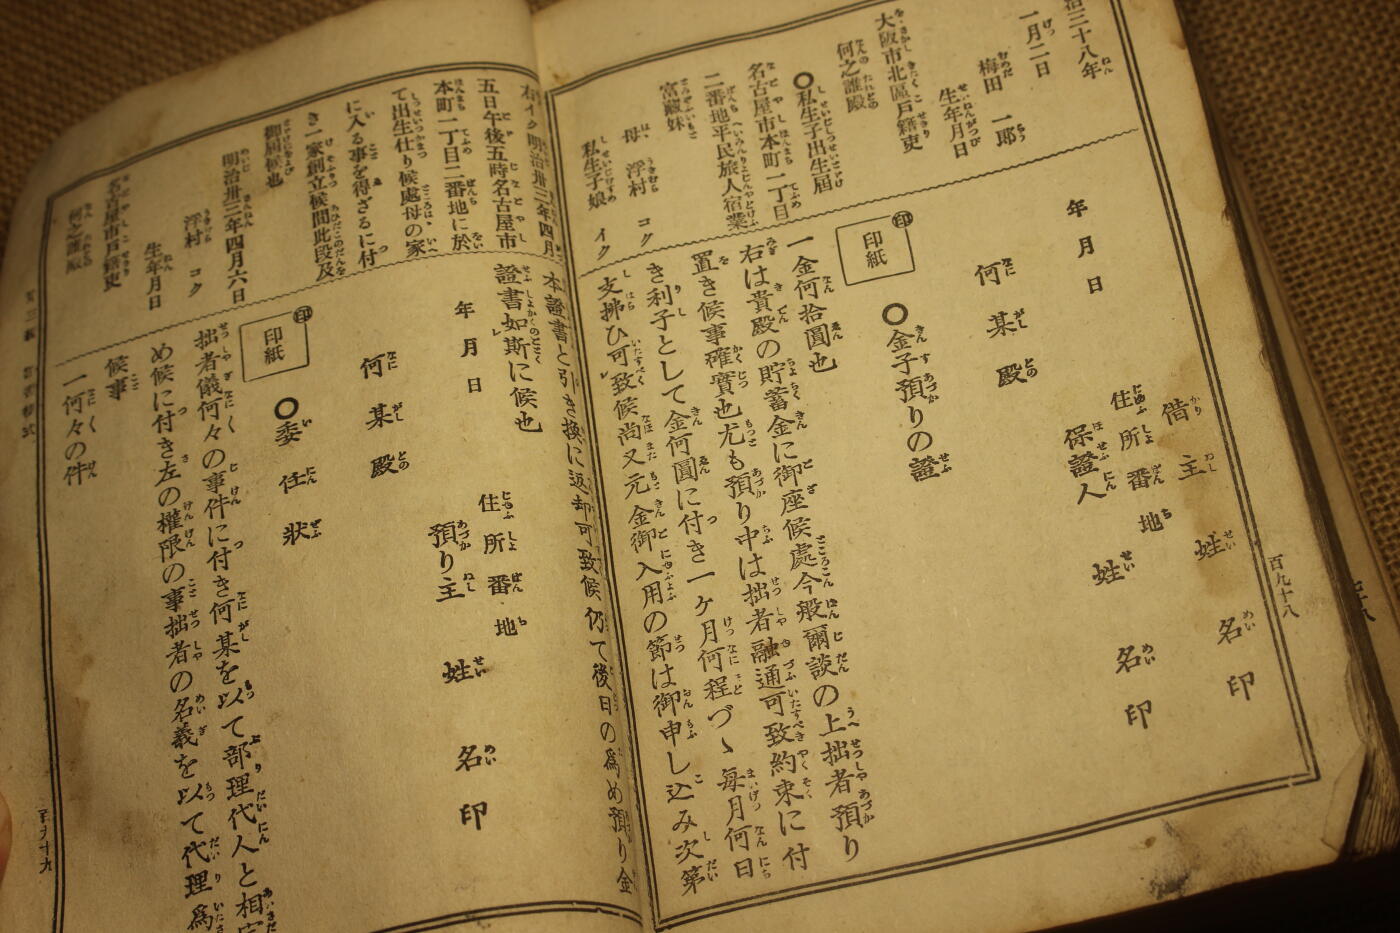 治三十八年
一月二日
梅田 一郎
生年月日
大阪市北區戸籍吏
何之誰殿
〇私生子出生届
名古屋市本町一丁目
二番地平民旅人宿業
宮藏妹
母 浮村 コク
私生子娘 イク
年 月 日
何 某 殿
借主 姓 名 印
住所番地
保證人 姓 名 印
印
印紙
〇金子預りの證
一金何拾圓也
右は貴殿の貯蓄金に御座候處今般爾談の上拙者預り
置き候事確實也尤も預り中は拙者融通可致約束に付
き利子として金何圓に付き一ケ月何程づゝ毎月何日
支拂ひ可致候尚又元金御入用の節は御申し込み次第
百九十八
右イク明治卅三年四月
五日午後五時名古屋市
本町一丁目二番地に於
て出生仕り候處母の家
に入る事を得ざるに付
き一家創立候間此段及
御届候也
明治卅三年四月六日
浮村 コク
生年月日
名古屋市戸籍吏
何之誰殿
本證書と引き換に返却可致候仍て後日の爲め預り金
證書如斯に候也
年 月 日
何 某 殿
住所番地
預り主 姓 名 印
印
印紙
〇委任狀
拙者儀何々の事件に付き何某を以て部理代人と相定
め候に付き左の權限の事拙者の名義を以て代理爲
候事
一何々の件
百九十九